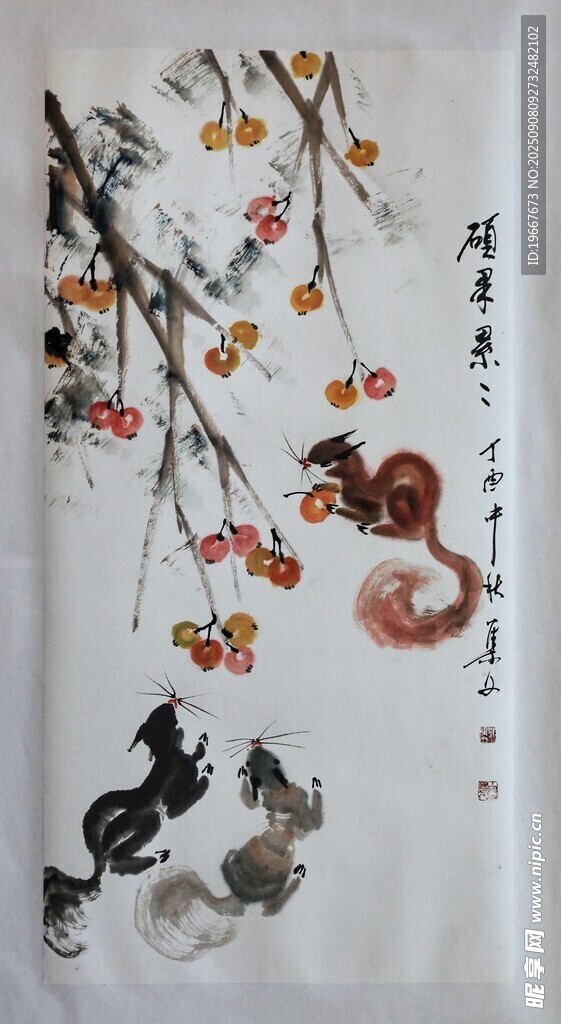 硕果累々
丁酉中秋 集文
ID:19667673 NO:20250908092732482102
昵享网 www.nipic.cn